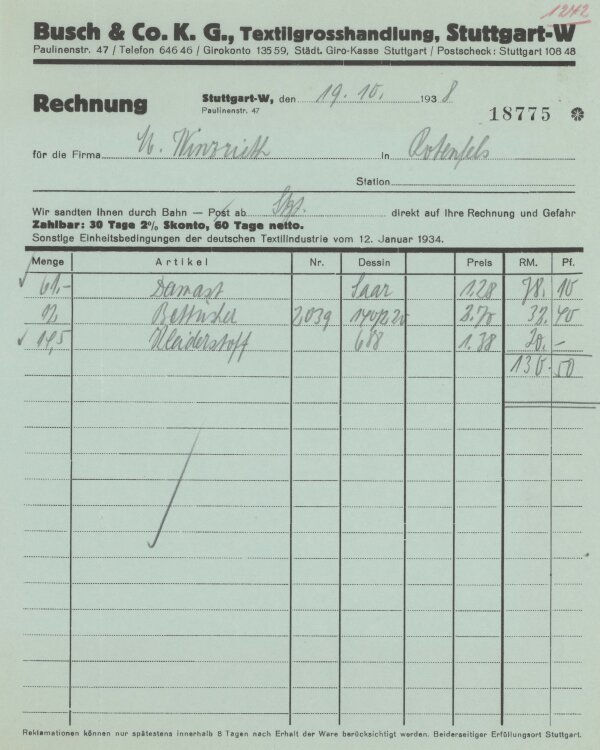 1212
Busch & Co. K. G., Textilgrosshandlung, Stuttgart-W
Paulinenstr. 47 / Telefon 646 46 / Girokonto 135 59, Städt. Giro-Kasse Stuttgart / Postscheck: Stuttgart 108 48
Rechnung Stuttgart-W, den 19. 10. 1938
Paulinenstr. 47
18775
für die Firma in Rotenfels
Station
Wir sandten Ihnen durch Bahn — Post ab Stgt. direkt auf Ihre Rechnung und Gefahr
Zahlbar: 30 Tage 2% Skonto, 60 Tage netto.
Sonstige Einheitsbedingungen der deutschen Textilindustrie vom 12. Januar 1934.
Menge Artikel Nr. Dessin Preis RM. Pf.
61.- Damast Saar 1.28 78. 10
12 Bettücher 2039 140/220 2.70 32. 40
14,5 Kleiderstoff 688 1.38 20. -
130. 50
Reklamationen können nur spätestens innerhalb 8 Tagen nach Erhalt der Ware berücksichtigt werden. Beiderseitiger Erfüllungsort Stuttgart.